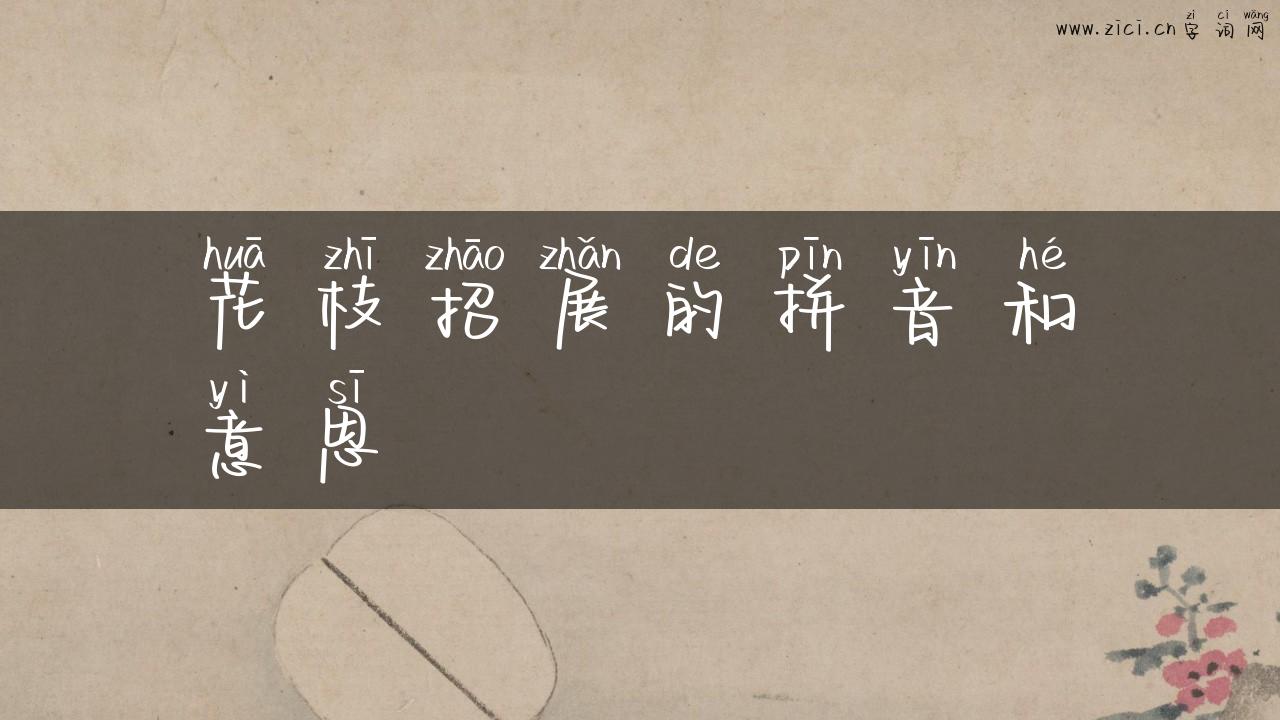 zì cí wǎng
www.zici.cn 字词网
huā zhī zhāo zhǎn de pīn yīn hé
花枝招展的拼音和
yì sī
意思